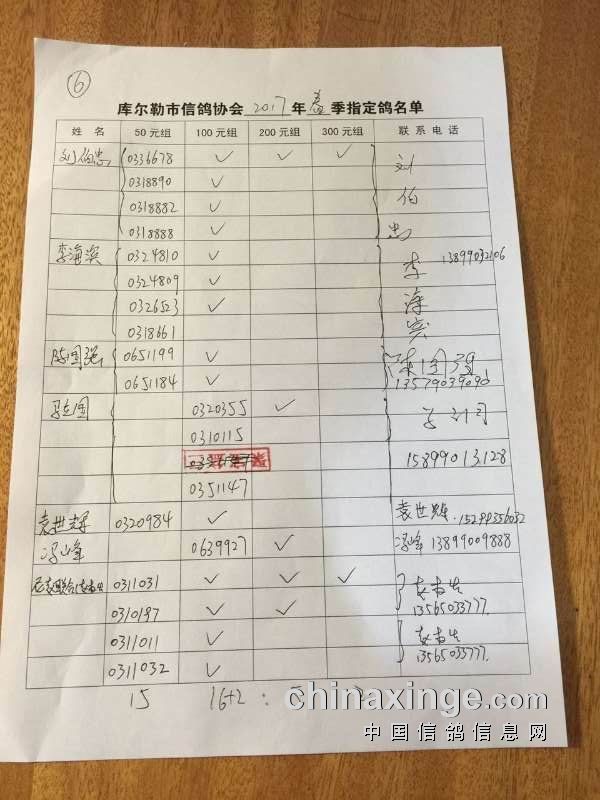 ⑥
库尔勒市信鸽协会 2017 年 春 季指定鸽名单
姓 名 50元组 100元组 200元组 300元组 联系电话
刘伯忠 0336678 ✓ ✓ ✓ 刘
0318890 ✓
0318882 ✓ 伯
0318888 ✓ 忠
李海滨 0324810 ✓ 李 13899032106
0324809 ✓
0326523 ✓ 海
0318661 宾
陈国强 0651199 ✓ 陈国强
0651184 ✓ 13579039090
马立国 0320355 ✓
0310115
15899013128
0351147
袁世辉 0320984 ✓ 袁世辉
冯峰 0639927 ✓ 冯峰 13899009888
0311031 ✓ ✓ ✓
0310197 ✓ ✓ 13565033777
0311011 ✓
0311032 ✓ 13565033777
15 16+2 :
chinaxinge.com
中国信鸽信息网